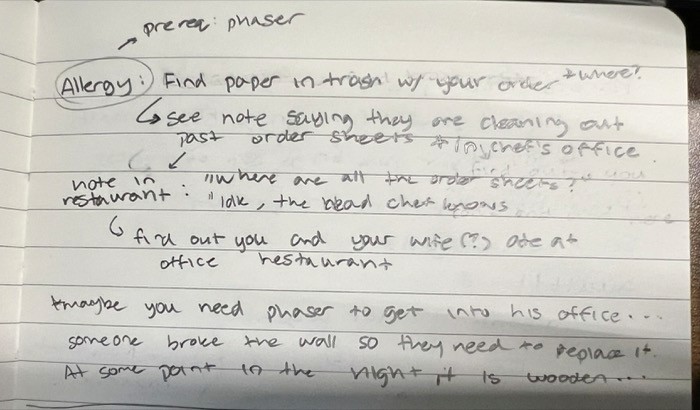 prereq: phaser
Allergy: Find paper in trash w/ your order + where?
see note saying they are cleaning out
past order sheets * in chef's office
note in "Where are all the order sheets?
restaurant: "Idk, the head chef knows
find out you and your wife (?) ate at
office restaurant
*maybe you need phaser to get into his office...
someone broke the wall so they need to replace it.
At some point in the night, it is wooden...